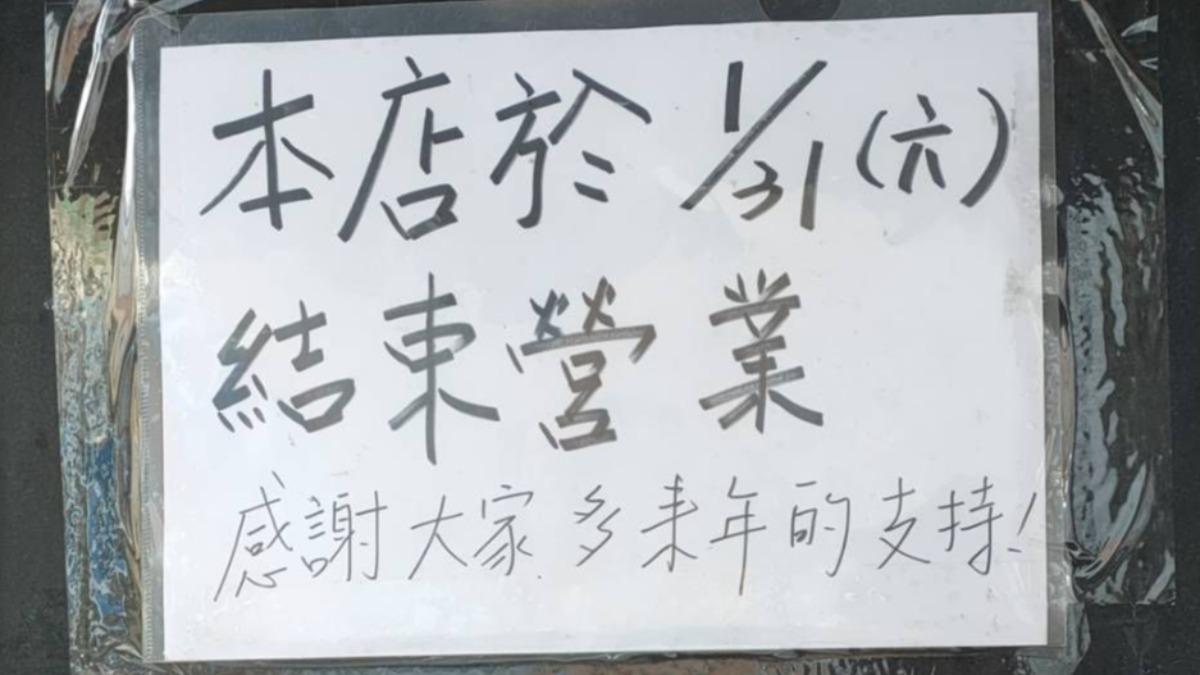 本店於 1/31 (六)
結束營業
感謝大家多年來的支持!